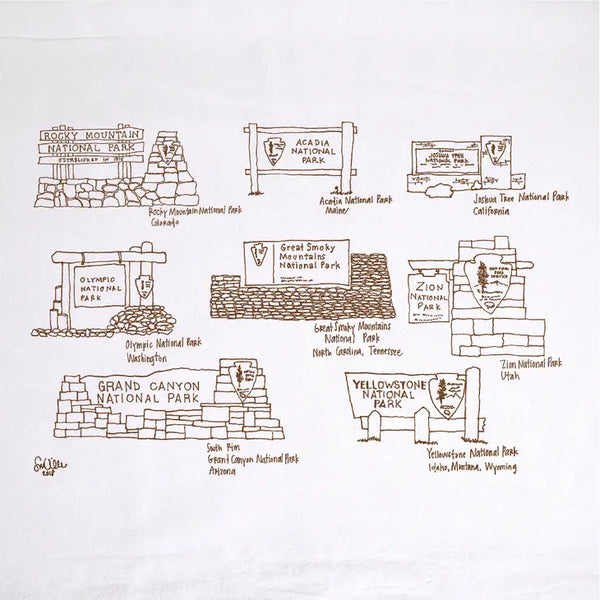 ROCKY MOUNTAIN
NATIONAL PARK
ESTABLISHED IN 1915
Rocky Mountain National Park
Colorado
ACADIA
NATIONAL
PARK
Acadia National Park
Maine
JOSHUA TREE
NATIONAL PARK
Joshua Tree National Park
California
OLYMPIC
NATIONAL
PARK
Olympic National Park
Washington
Great Smoky
Mountains
National Park
Great Smoky Mountains
National Park
North Carolina, Tennessee
ZION
NATIONAL
PARK
NATIONAL
PARK SERVICE
Zion National Park
Utah
GRAND CANYON
NATIONAL PARK
South Rim
Grand Canyon National Park
Arizona
YELLOWSTONE
NATIONAL
PARK
Yellowstone National Park
Idaho, Montana, Wyoming
2018